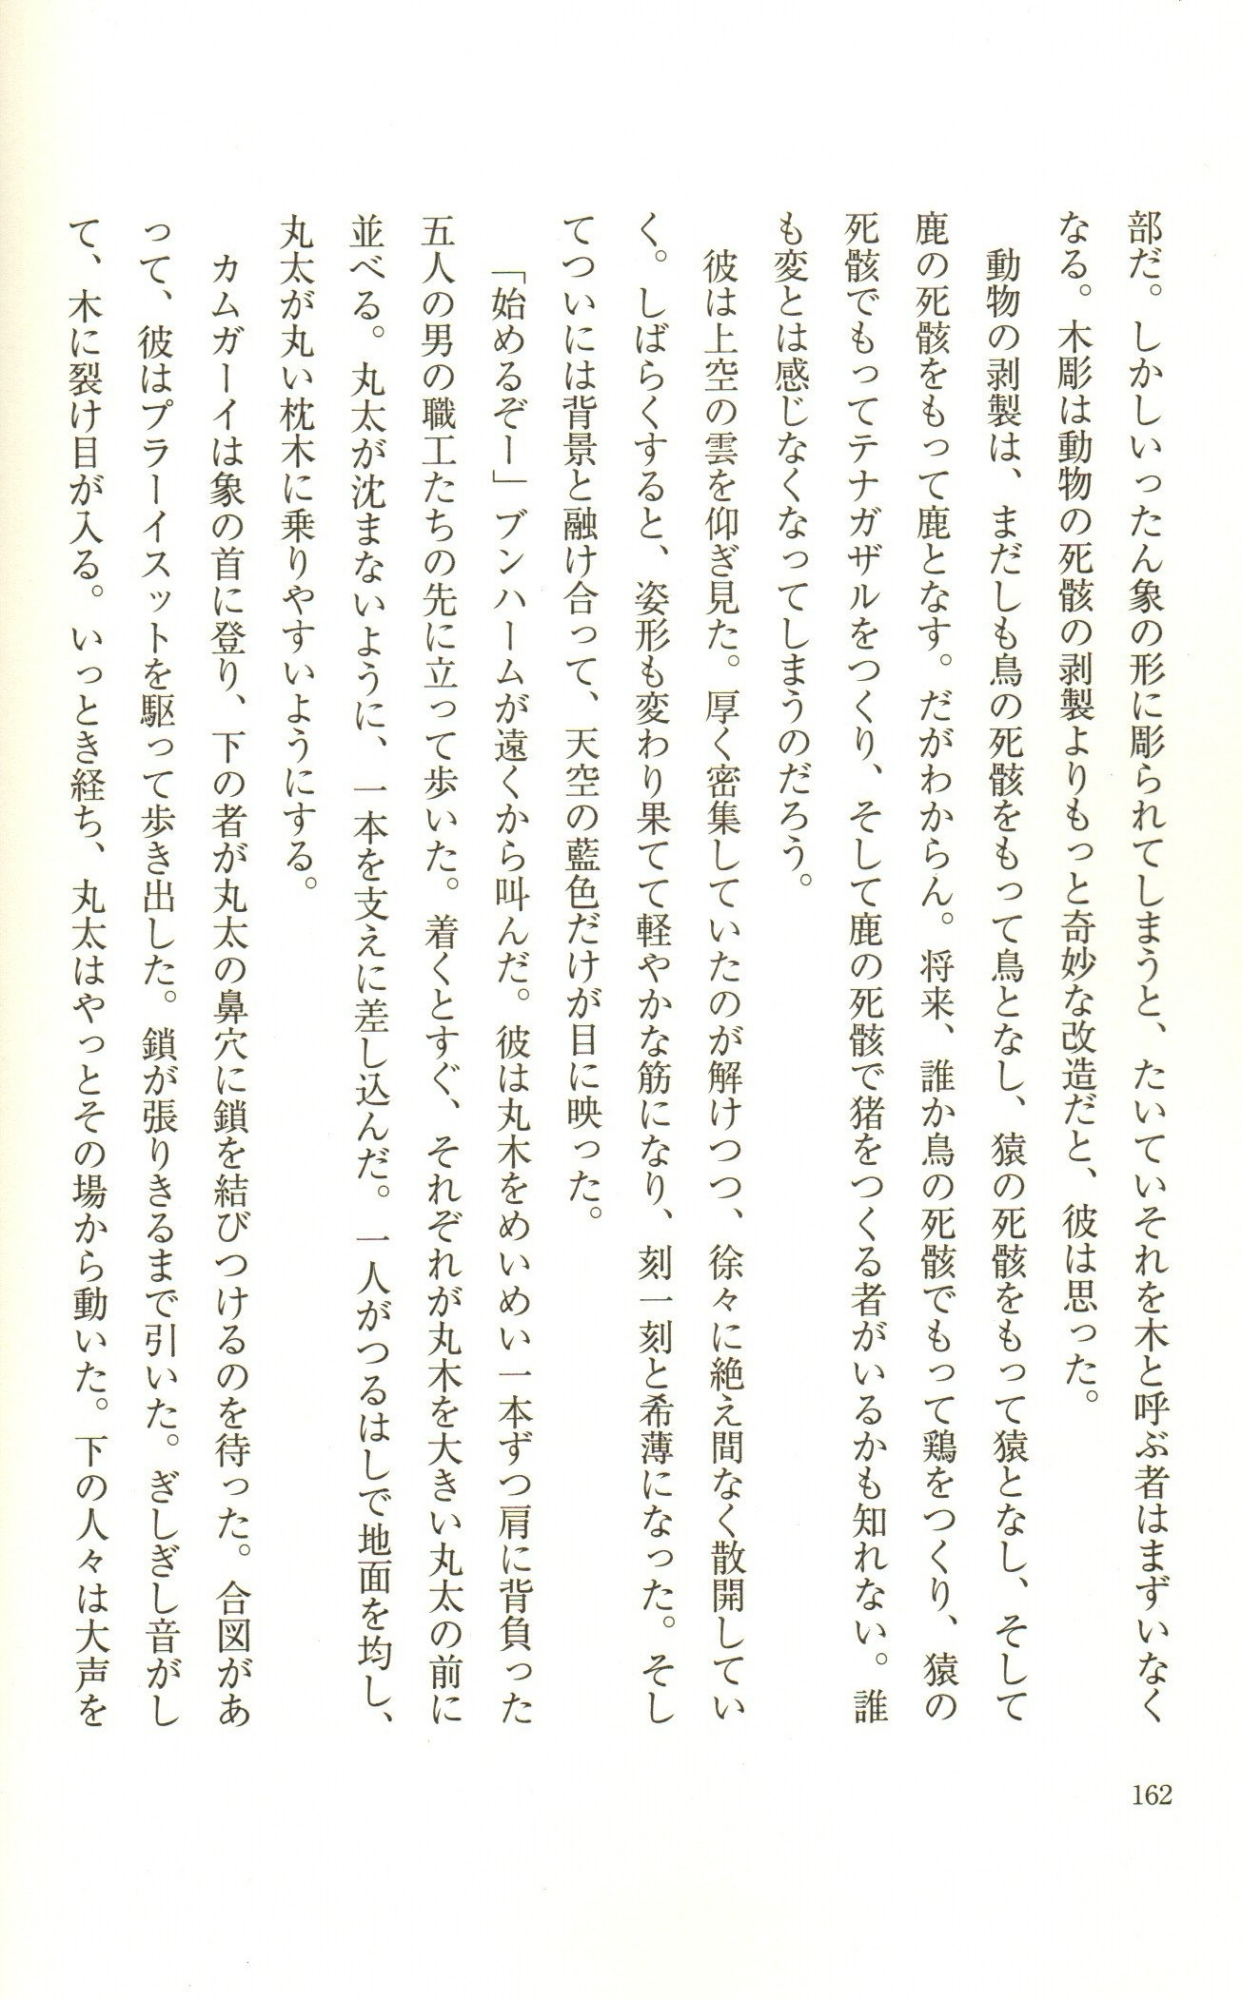 部だ。しかしいったん象の形に彫られてしまうと、たいていそれを木と呼ぶ者はまずいなく
なる。木彫は動物の死骸の剥製よりもっと奇妙な改造だと、彼は思った。
動物の剥製は、まだしも鳥の死骸をもって鳥となし、猿の死骸をもって猿となし、そして
鹿の死骸をもって鹿となす。だがわからん。将来、誰か鳥の死骸でもって鶏をつくり、猿の
死骸でもってテナガザルをつくり、そして鹿の死骸で猪をつくる者がいるかも知れない。誰
も変とは感じなくなってしまうのだろう。
彼は上空の雲を仰ぎ見た。厚く密集していたのが解けつつ、徐々に絶え間なく散開してい
く。しばらくすると、姿形も変わり果てて軽やかな筋になり、刻一刻と希薄になった。そし
てついには背景と融け合って、天空の藍色だけが目に映った。
「始めるぞー」ブンハームが遠くから叫んだ。彼は丸木をめいめい一本ずつ肩に背負った
五人の男の職工たちの先に立って歩いた。着くとすぐ、それぞれが丸木を大きい丸太の前に
並べる。丸太が沈まないように、一本を支えに差し込んだ。一人がつるはしで地面を均し、
丸太が丸い枕木に乗りやすいようにする。
カムガーイは象の首に登り、下の者が丸太の鼻穴に鎖を結びつけるのを待った。合図があ
って、彼はプラーイスットを駆って歩き出した。鎖が張りきるまで引いた。ぎしぎし音がし
て、木に裂け目が入る。いっとき経ち、丸太はやっとその場から動いた。下の人々は大声を
162